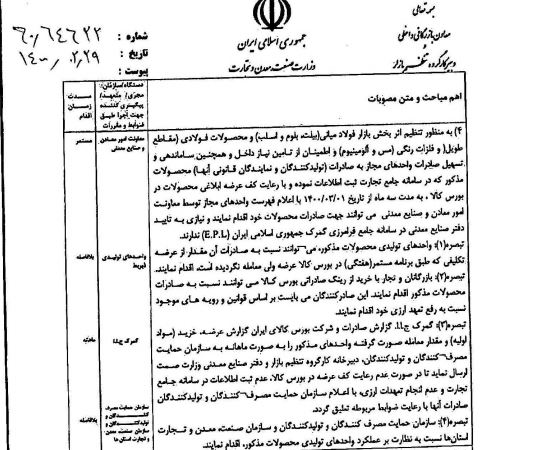 بسمه تعالی
معاون بازرگانی داخلی
و
دبیر کارگروه تنظیم بازار
جمهوری اسلامی ایران
وزارت صنعت، معدن و تجارت
شماره : ۶۰/۶۴۶۲۲
تاریخ : ۱۴۰۰/۰۲/۲۹
پیوست :
اهم مباحث و متن مصوبات
دستگاه/سازمان:
مجری/ متعهد/
پیگیری کننده
جهت اجرا طبق
ضوابط و مقررات
مدت
زمان
اقدام
۴) به منظور تنظیم اثر بخش بازار فولاد میانی(بیلت، بلوم و اسلب) و محصولات فولادی (مقاطع
طویل( و فلزات رنگی (مس و آلومینیوم) و اطمینان از تامین نیاز داخل و همچنین ساماندهی و
تسهیل صادرات واحدهای مجاز به صادرات (تولیدکنندگان و نمایندگان قانونی آنها) محصولات
مذکور که در سامانه جامع تجارت ثبت اطلاعات نموده و با رعایت کف عرضه ابلاغی محصولات در
بورس کالا ، به مدت سه ماه از تاریخ ۱۴۰۰/۰۳/۰۱ با اعلام فهرست واحدهای مجاز توسط معاونت
امور معادن و صنایع معدنی می توانند جهت صادرات محصولات خود اقدام نمایند و نیازی به تایید
دفتر صنایع معدنی در سامانه جامع فرامرزی گمرک جمهوری اسلامی ایران (E.P.L) ندارند.
معاونت امور معادن
و صنایع معدنی
مستمر
تبصره(۱): واحدهای تولیدی محصولات مذکور، می توانند نسبت به صادرات آن مقدار از عرضه
تکلیفی که طبق برنامه مستمر(هفتگی) در بورس کالا عرضه ولی معامله نگردیده است، اقدام نمایند.
واحدهای تولیدی
ذیربط
بلافاصله
تبصره(۲): بازرگانان و تجار با خرید از رینگ صادراتی بورس کالا می توانند نسبت به صادرات
محصولات مذکور اقدام نمایند. این صادرکنندگان می بایست بر اساس قوانین و رویه های موجود
نسبت به رفع تعهد ارزی خود اقدام نمایند.
تبصره(۳): گمرک ج.ا.ا. گزارش صادرات و شرکت بورس کالای ایران گزارش عرضه، خرید (مواد
اولیه) و مقدار معامله صورت گرفته واحدهای مذکور را به صورت ماهانه به سازمان حمایت
مصرف کنندگان و تولیدکنندگان، دبیرخانه کارگروه تنظیم بازار و دفتر صنایع معدنی وزارت صمت
ارسال نماید تا در صورت عدم رعایت کف عرضه در بورس کالا، عدم ثبت اطلاعات در سامانه جامع
تجارت و عدم انجام تعهدات ارزی، با اعلام سازمان حمایت مصرف کنندگان و تولیدکنندگان
صادرات آنها با رعایت ضوابط مربوطه تعلیق گردد.
گمرک ج.ا.ا
ماهانه
تبصره(۴): سازمان حمایت مصرف کنندگان و تولیدکنندگان و سازمان صنعت، معدن و تجارت
استان‌ها نسبت به نظارت بر عملکرد واحدهای تولیدی محصولات مذکور، اقدام نمایند.
سازمان حمایت مصرف
کنندگان و
تولیدکنندگان و
سازمان صنعت، معدن
و تجارت استان ها
بلافاصله